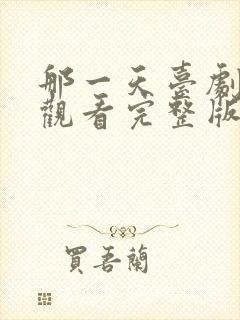 那一天臺劇
觀看完整版
買吾蘭